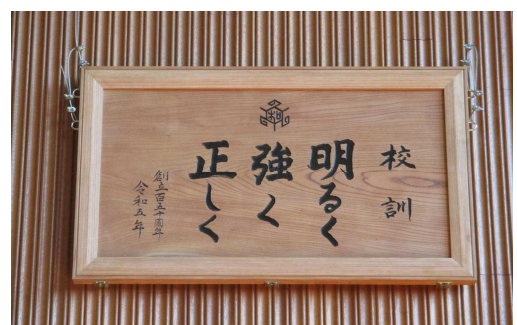 校訓
明るく
強く
正しく
創立百五十周年
令和五年